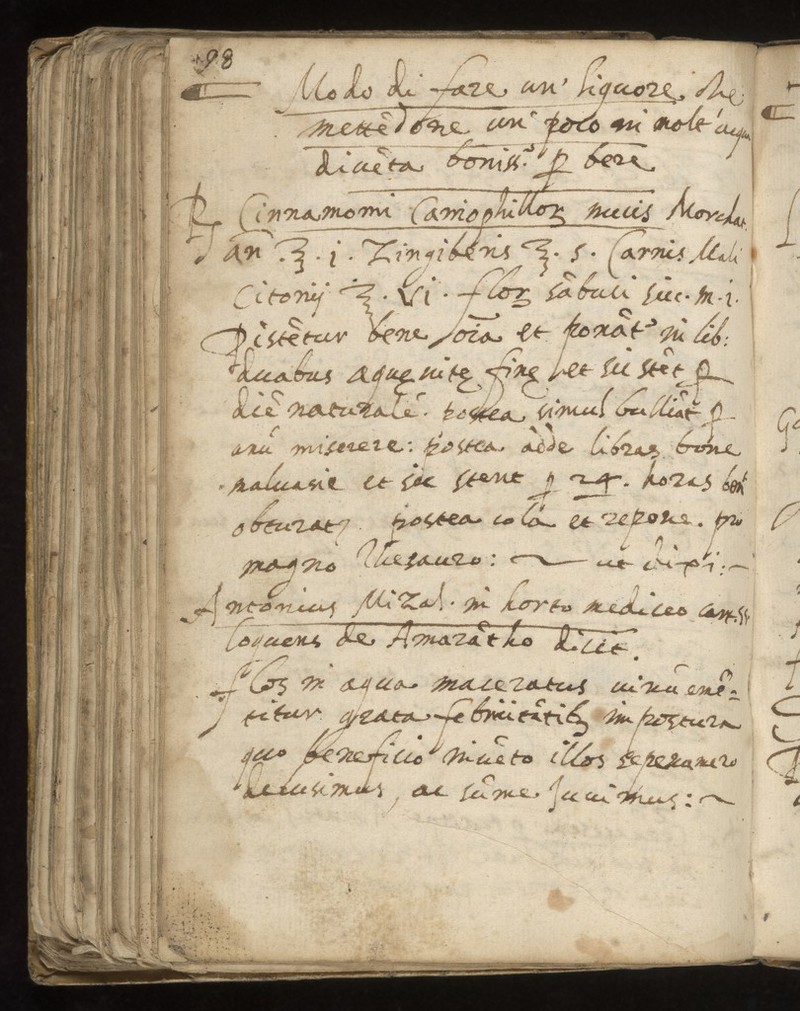 98
Modo di fare un' liquore, che
mettẽdone un' poco in molt' acqua
diuẽta boniss.º ꝑ bere
℞ Cinnamomi Cariophilloꝝ nucis Moschat.
añ ℥. j. Zingiberis ℥. s. Carnis Mali
Citonij ℥. vi. floꝝ sãbuci sicc. m. i.
Pistẽtur bene oĩa et ponãtʳ in lib:
duabus aquę uitę finę et sic stẽt ꝑ
diẽ naturalẽ. postea simul bulliãt ꝑ
unũ miserere: postea adde libras bone
maluasie et sic stent ꝑ 24. horas benẽ
obturatȝ. postea cola et repone. pro
magno Thesauro: ~ ut dixi:~
Antonius Mizal. in horto medico
loquens de Amarãtho dicit.
flos in aqua maceratus uinũ emẽ=
titur grata febriicitãtibꝫ impostura
quo beneficio inuẽto illos sepenumero
decusimus, ac sũme iuuimus:~